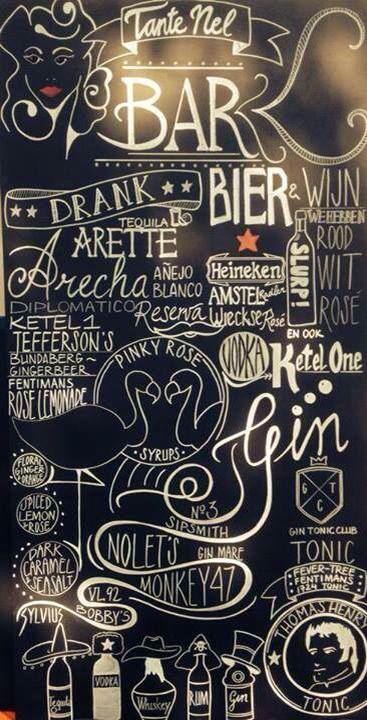 Tante Nel
BAR
DRANK
BIER & WIJN
TEQUILA
ARETTE
WE HEBBEN
ROOD
WIT
ROSÉ
SLURP!
Arecha
AÑEJO
BLANCO
Heineken
AMSTEL Radler
Wieckse Rosé
DIPLOMATICO Reserva
KETEL 1
JEFFERSON'S
BUNDABERG~
GINGERBEER
FENTIMANS
ROSE LEMONADE
EN OOK
VODKA
Ketel One
PINKY ROSE
SYRUPS
Gin
FLORAL
GINGER
& ORANGE
SPICED
LEMON
& ROSE
DARK
CARAMEL
& SEASALT
No. 3
SIPSMITH
NOLET'S
GIN MARE
MONKEY 47
VL.92
BOBBY'S
SYLVIUS
G T
C
GIN TONIC CLUB
TONIC
FEVER-TREE
FENTIMANS
1724 TONIC
THOMAS HENRY
TONIC
Tequila
VODKA
Whiskey
RUM
Gin